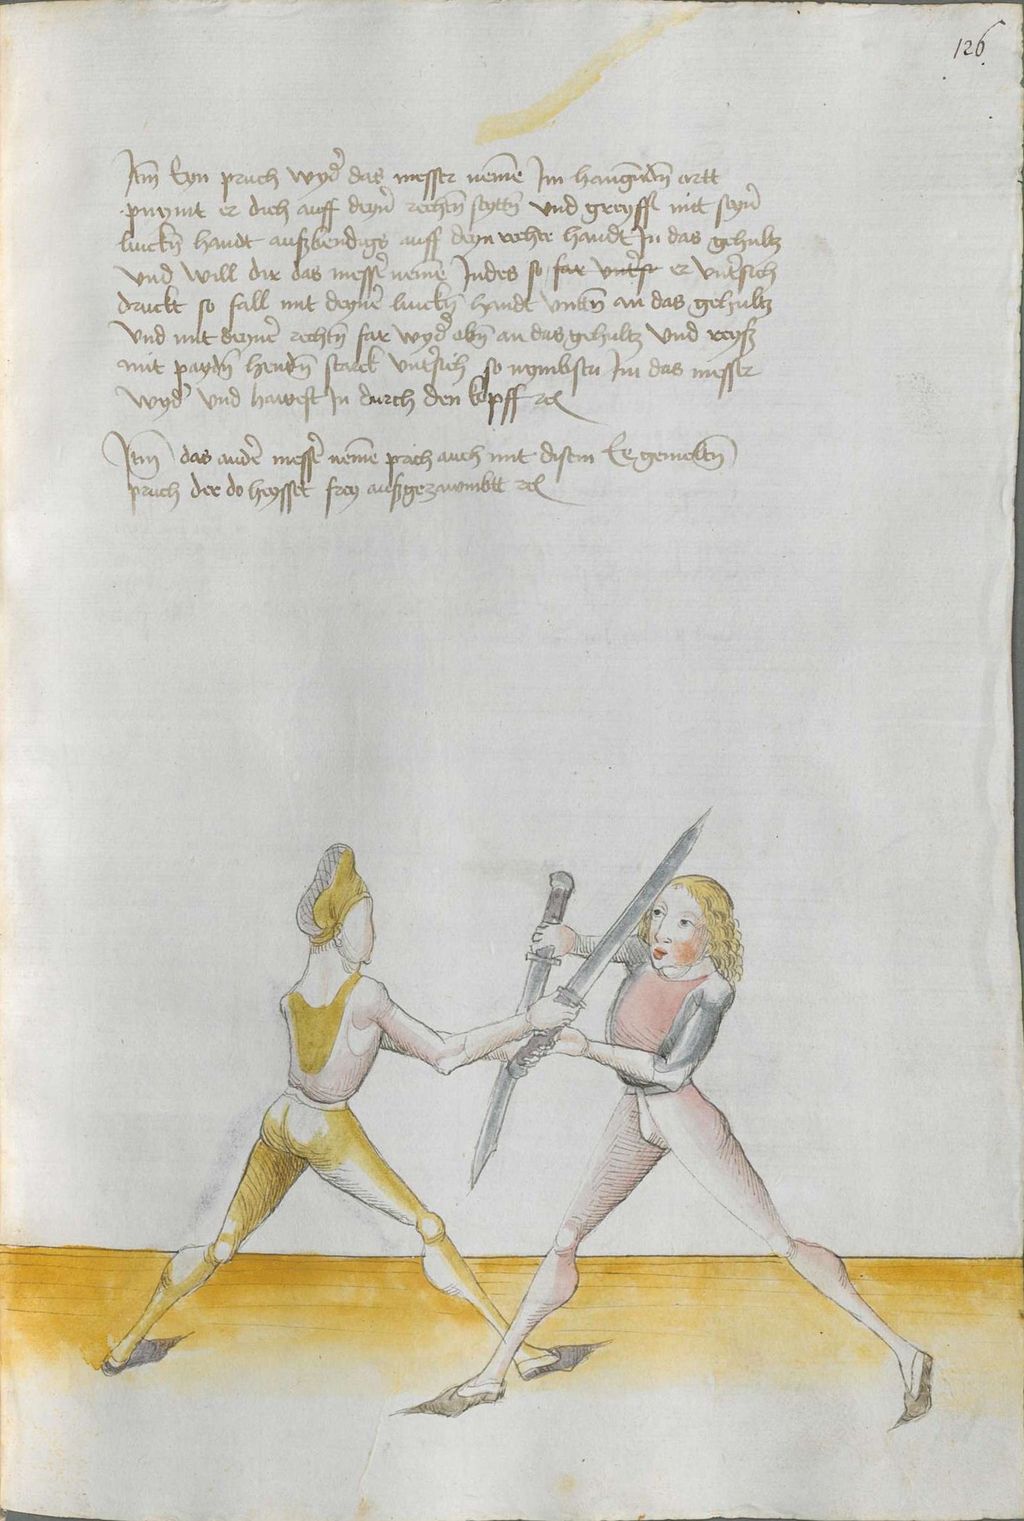 126
Jtm̃ Eyn pruch wyd' das messer neme͂ Jm hangu͂dn͂ ortt
pwynt er dich auff deyn' rechtn͂ seyttn͂ vnd greyfft mit seyn'
linckn͂ handt aussbendigs auff deyn rechte handt Jn das gehultz
vnd will dir das mess' neme͂ Jndes so far vnt'st er vnt'sich
druckt so fall mit deyne' linckn͂ handt vntn͂ an das gehultz
vnd mit deyne' rechtn͂ far wyd' obn͂ an das gehultz vnd reyß
mit paydn͂ hendn͂ starck vnt'sich so nymbstu Jm das messer
wyd' vnd hawest Jn durch den kopff rc
Jtm̃ das ander mess' neme͂ prich auch mit disem
pruch der do heysset frey außgezawmbtt rc